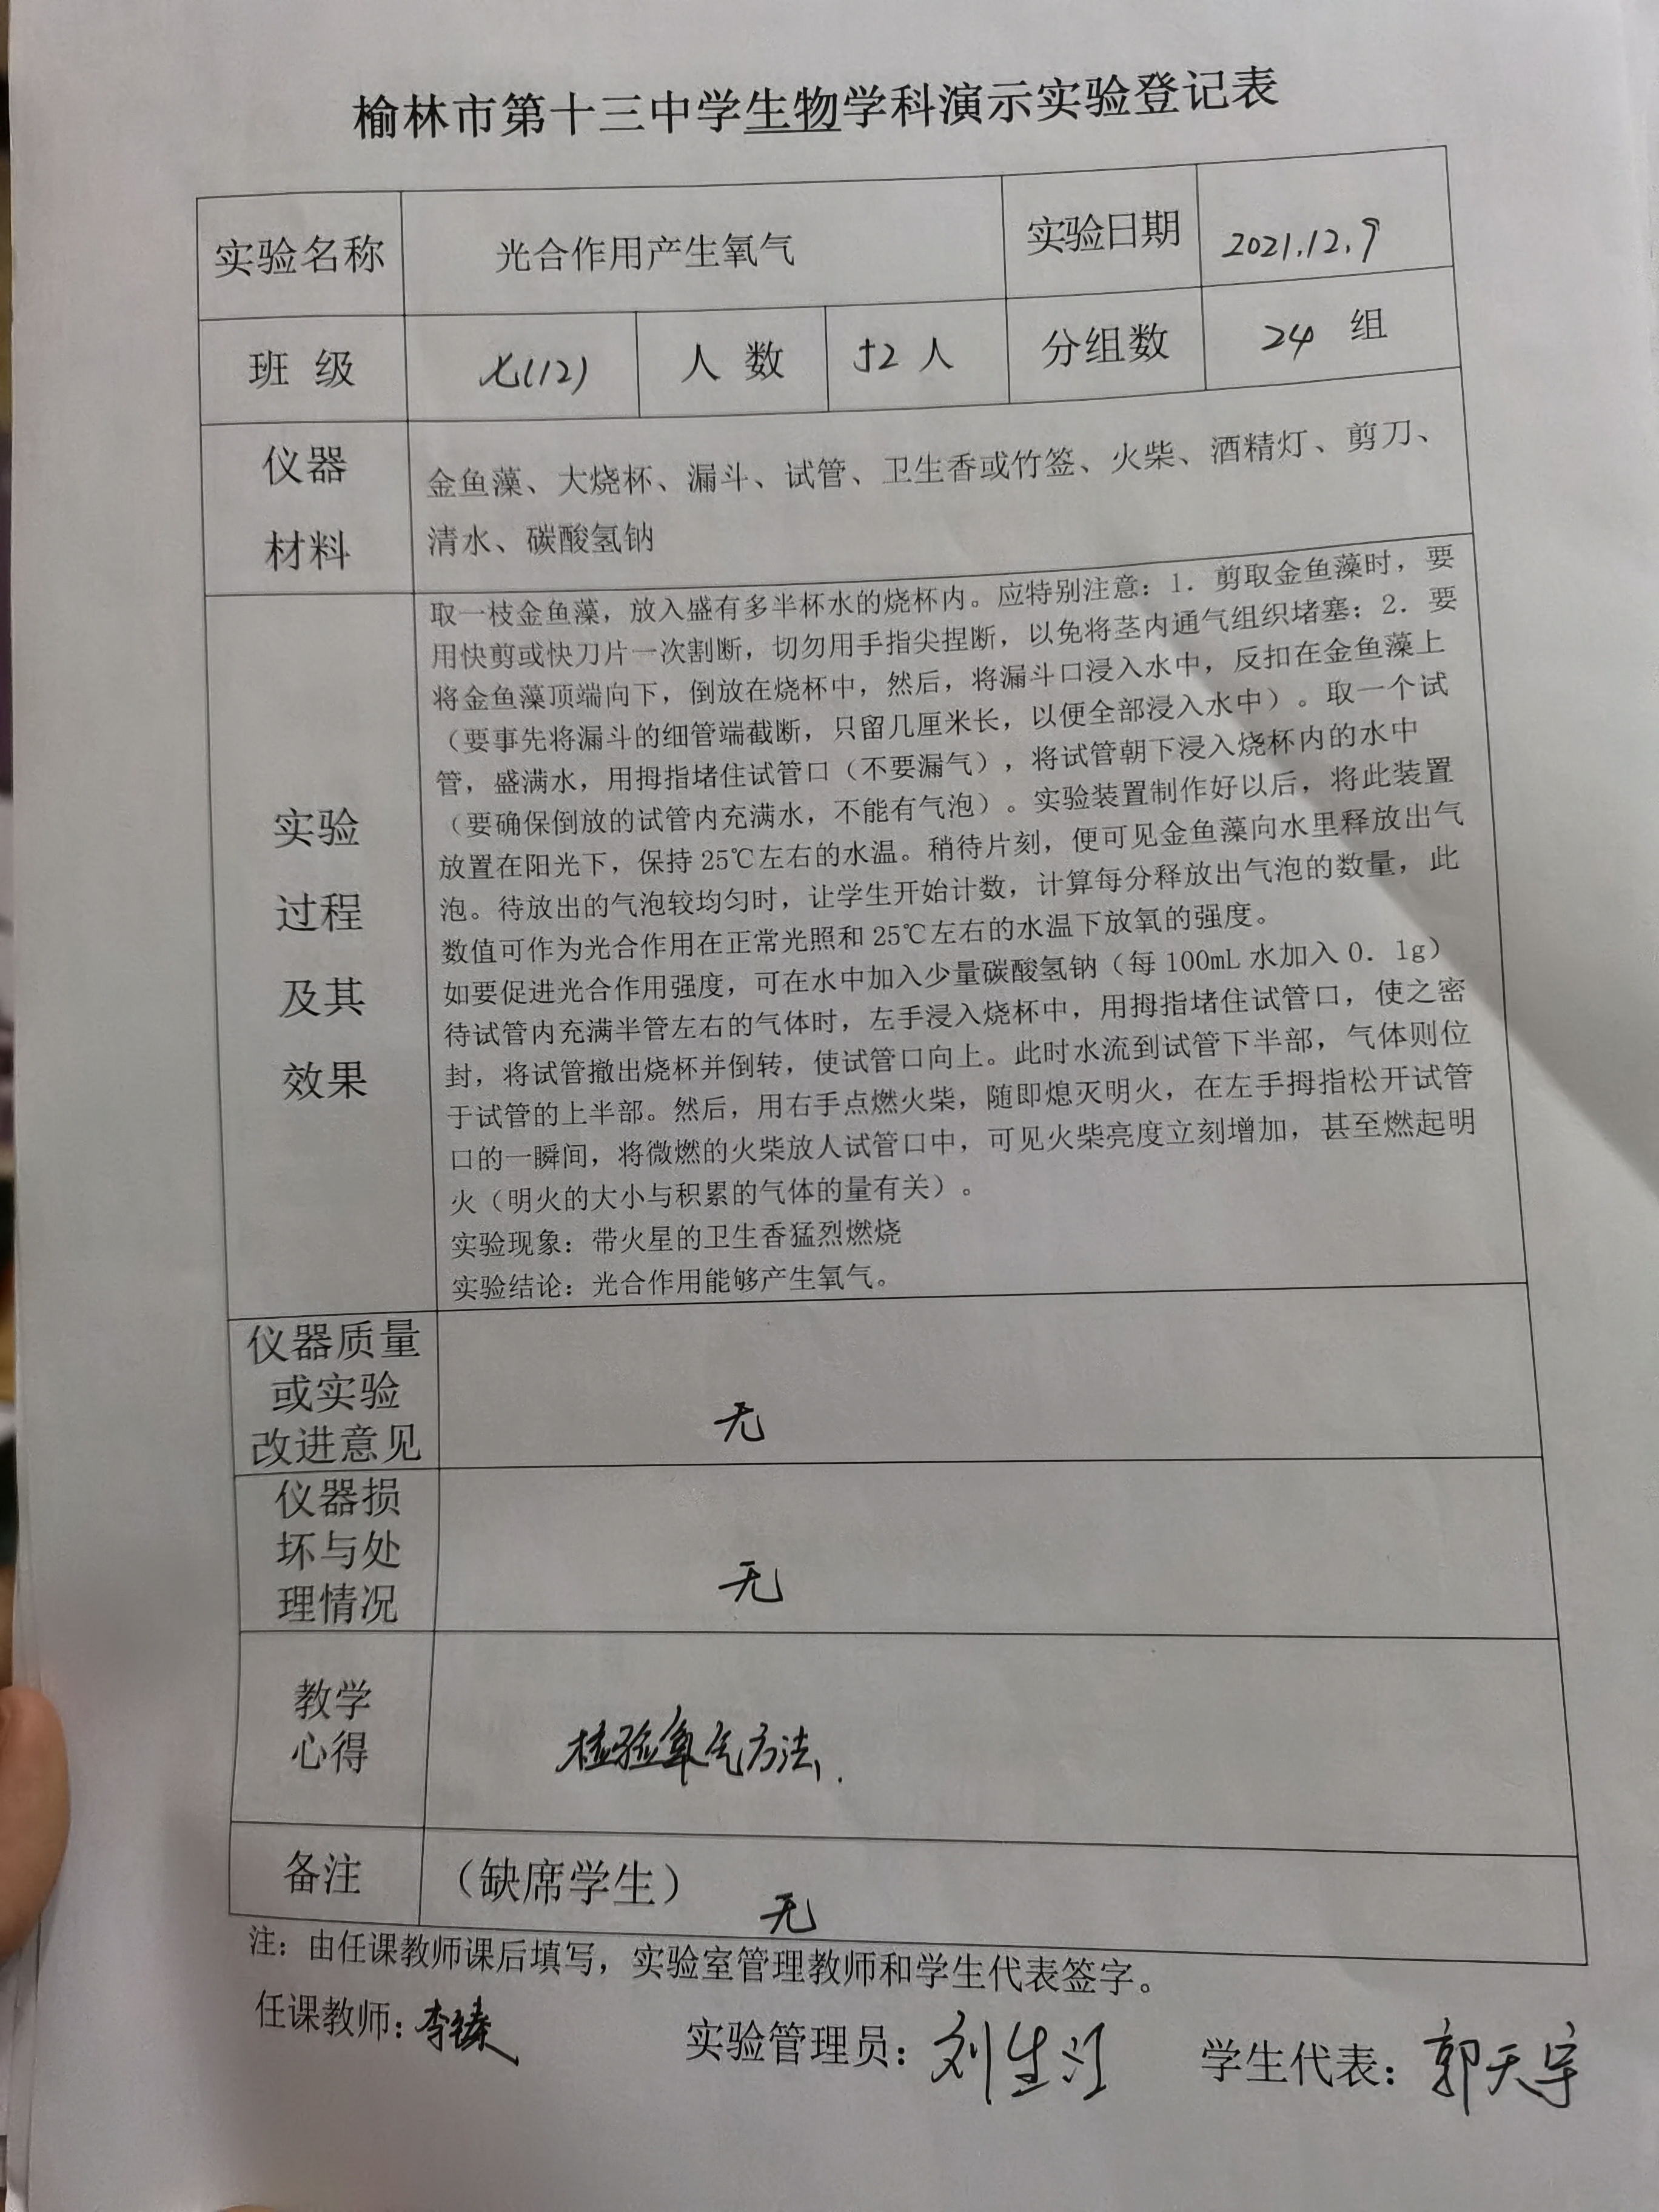 榆林市第十三中学生物学科演示实验登记表
实验名称 光合作用产生氧气 实验日期 2021.12.9
班 级 七(12) 人 数 52 人 分组数 24 组
仪器
材料
金鱼藻、大烧杯、漏斗、试管、卫生香或竹签、火柴、酒精灯、剪刀、
清水、碳酸氢钠
实验
过程
及其
效果
取一枝金鱼藻，放入盛有多半杯水的烧杯内。应特别注意：1．剪取金鱼藻时，要
用快剪或快刀片一次割断，切勿用手指尖捏断，以免将茎内通气组织堵塞；2．要
将金鱼藻顶端向下，倒放在烧杯中，然后，将漏斗口浸入水中，反扣在金鱼藻上
（要事先将漏斗的细管端截断，只留几厘米长，以便全部浸入水中）。取一个试
管，盛满水，用拇指堵住试管口（不要漏气），将试管朝下浸入烧杯内的水中
（要确保倒放的试管内充满水，不能有气泡）。实验装置制作好以后，将此装置
放置在阳光下，保持 25℃左右的水温。稍待片刻，便可见金鱼藻向水里释放出气
泡。待放出的气泡较均匀时，让学生开始计数，计算每分释放出气泡的数量，此
数值可作为光合作用在正常光照和 25℃左右的水温下放氧的强度。
如要促进光合作用强度，可在水中加入少量碳酸氢钠（每 100mL 水加入 0．1g）
待试管内充满半管左右的气体时，左手浸入烧杯中，用拇指堵住试管口，使之密
封，将试管撤出烧杯并倒转，使试管口向上。此时水流到试管下半部，气体则位
于试管的上半部。然后，用右手点燃火柴，随即熄灭明火，在左手拇指松开试管
口的一瞬间，将微燃的火柴放人试管口中，可见火柴亮度立刻增加，甚至燃起明
火（明火的大小与积累的气体的量有关）。
实验现象：带火星的卫生香猛烈燃烧
实验结论：光合作用能够产生氧气。
仪器质量
或实验
改进意见
无
仪器损
坏与处
理情况
无
教学
心得
检验氧气方法.
备注 （缺席学生） 无
注：由任课教师课后填写，实验室管理教师和学生代表签字。
任课教师：李 实验管理员：刘生 学生代表：郭天宇